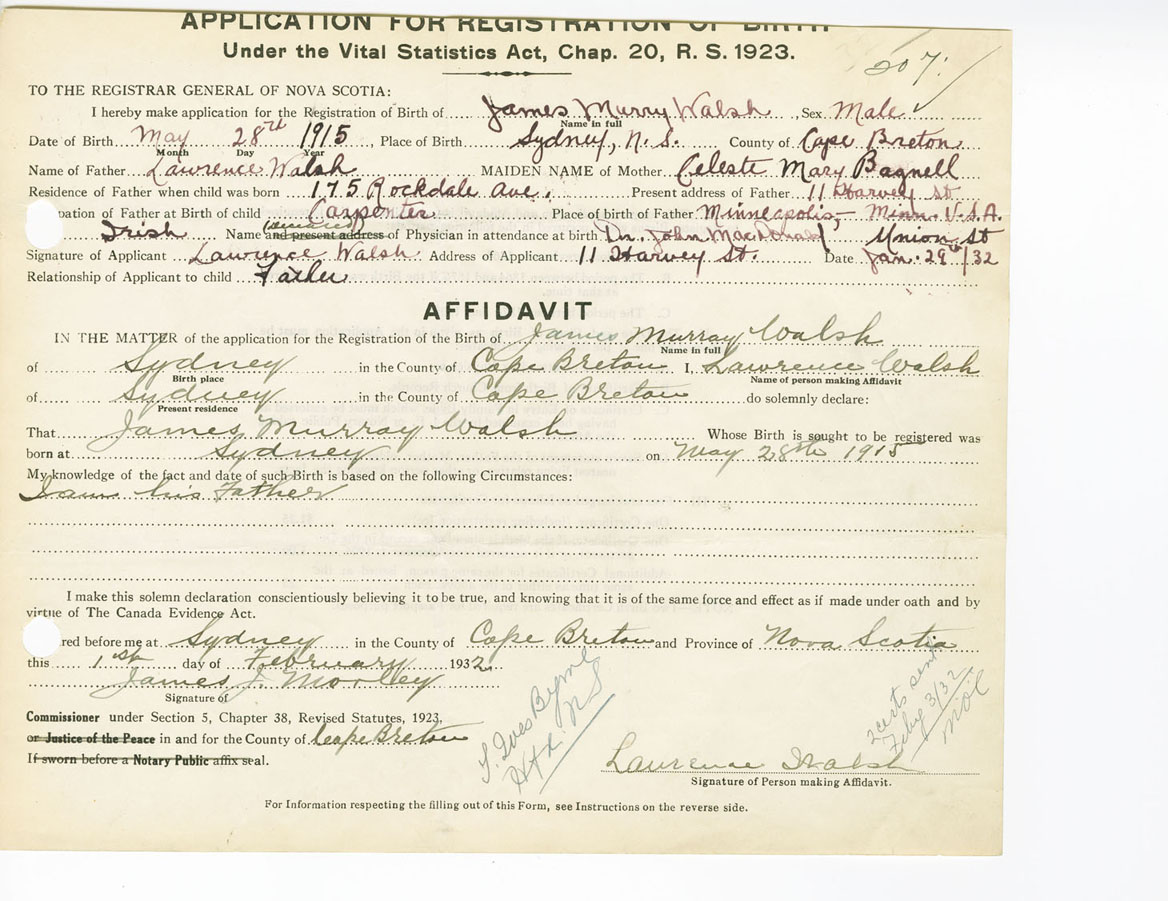 APPLICATION FOR REGISTRATION OF BIRTH
Under the Vital Statistics Act, Chap. 20, R. S. 1923.
207.
TO THE REGISTRAR GENERAL OF NOVA SCOTIA:
I hereby make application for the Registration of Birth of James Murry Walsh, Sex Male
Name in full
Date of Birth May 28th 1915, Place of Birth Sydney, N. S. County of Cape Breton
Month Day Year
Name of Father Lawrence Walsh MAIDEN NAME of Mother Celeste Mary Bagnell
Residence of Father when child was born 175 Rockdale Ave. Present address of Father 11 Harvey St.
pation of Father at Birth of child Carpenter Place of birth of Father Minneapolis, Minn. U.S.A.
Irish Name (deceased) and present address of Physician in attendance at birth Dr. John MacDonald, Union St
Signature of Applicant Lawrence Walsh Address of Applicant 11 Harvey St. Date Jan. 29th/32
Relationship of Applicant to child Father
AFFIDAVIT
IN THE MATTER of the application for the Registration of the Birth of James Murray Walsh
Name in full
of Sydney in the County of Cape Breton I, Lawrence Walsh
Birth place Name of person making Affidavit
of Sydney in the County of Cape Breton do solemnly declare:
Present residence
That James Murray Walsh Whose Birth is sought to be registered was
born at Sydney on May 28th 1915
My knowledge of the fact and date of such Birth is based on the following Circumstances:
I am his Father
I make this solemn declaration conscientiously believing it to be true, and knowing that it is of the same force and effect as if made under oath and by
virtue of The Canada Evidence Act.
red before me at Sydney in the County of Cape Breton and Province of Nova Scotia
this 1st day of February 1932.
James J. Morley
Signature of
Commissioner under Section 5, Chapter 38, Revised Statutes, 1923,
or Justice of the Peace in and for the County of Cape Breton
If sworn before a Notary Public affix seal.
Ives Byrne
Hfx. NS
2 certs sent
Feby 3/32
Lawrence Walsh
Signature of Person making Affidavit.
For Information respecting the filling out of this Form, see Instructions on the reverse side.